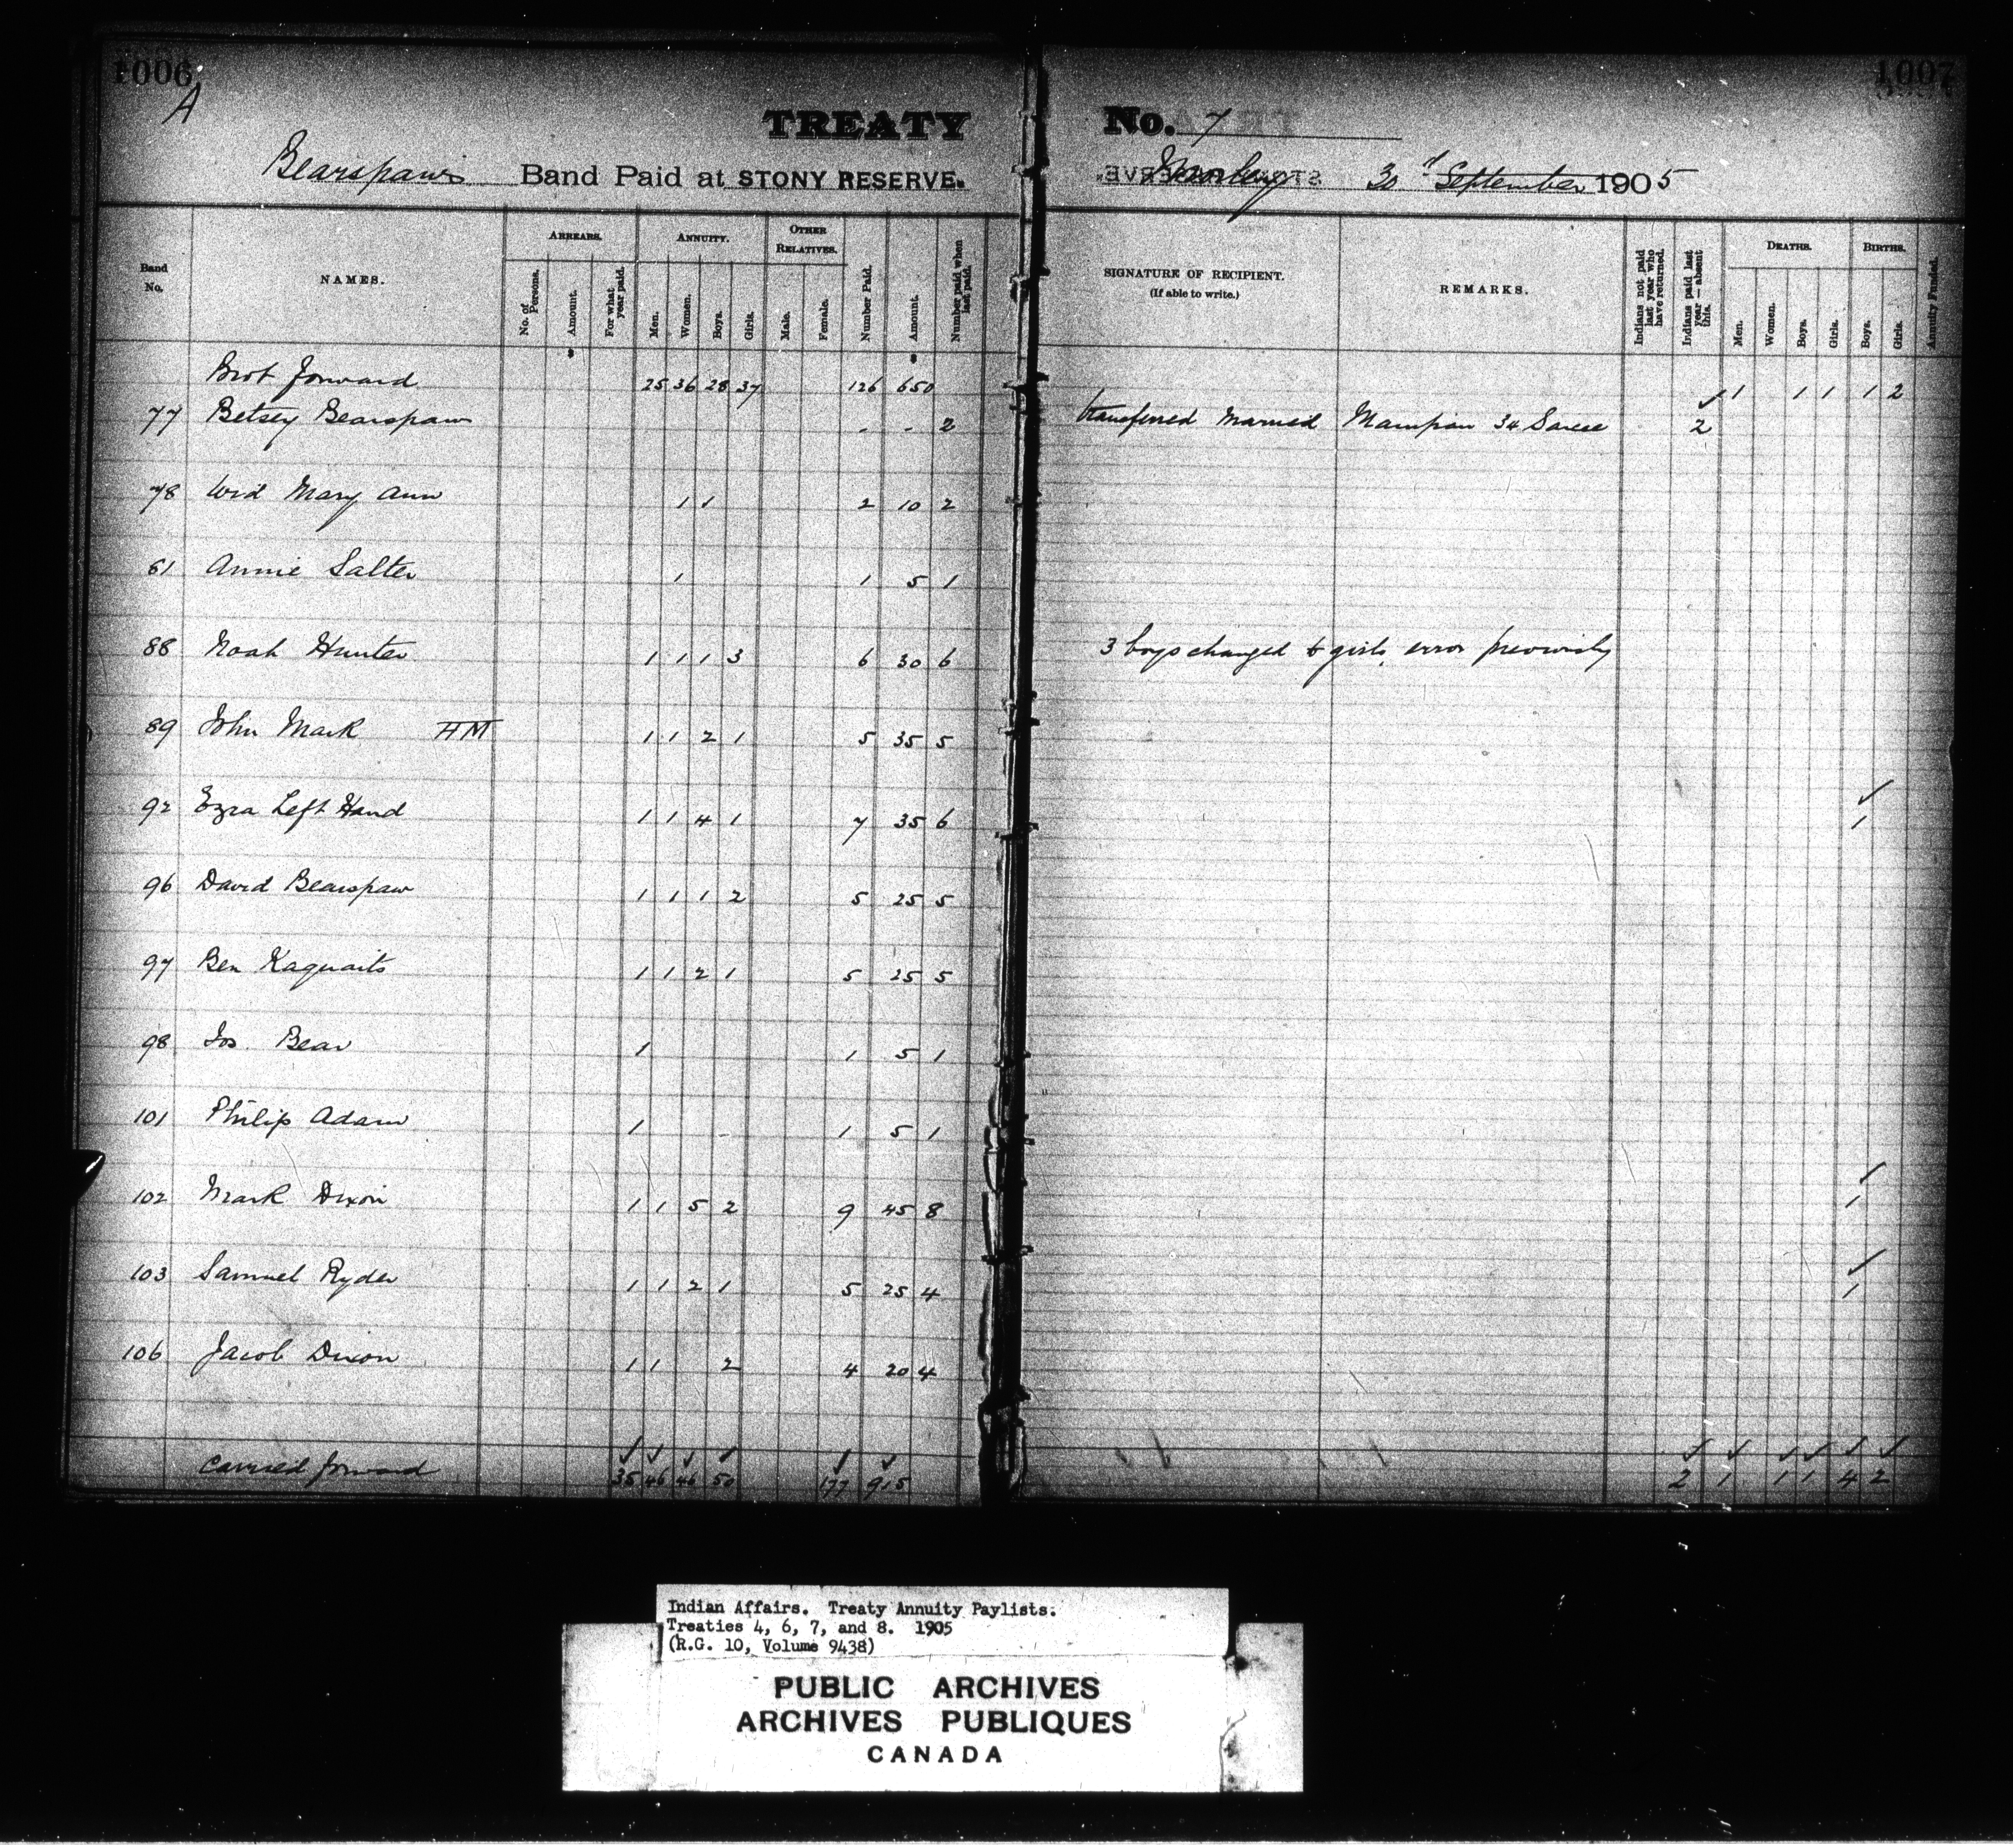 1006 1007
A
TREATY No. 7
Bearspaws Band Paid at STONY RESERVE. Morley 30th September 1905
Band No. NAMES. ARREARS. No. of Persons. Amount. For what year paid. ANNUITY. Men. Women. Boys. Girls. OTHER RELATIVES. Male. Female. Number Paid. Amount. Number paid when last paid. SIGNATURE OF RECIPIENT. (If able to write.) REMARKS. Indians not paid last year who have returned. Indians paid last year—absent this. DEATHS. Men. Women. Boys. Girls. BIRTHS. Boys. Girls. Annuity Funded.
Brot forward 25 36 28 37 126 650 1 1 1 1 2
77 Betsey Bearspaw - - 2 transferred married 34 Sarcee 2
78 Wid Mary Ann 1 1 2 10 2
81 Annie Salter 1 1 5 1
88 Noah Hunter 1 1 1 3 6 30 6 3 boys changed to girls, error previously
89 John Mark HM 1 1 2 1 5 35 5
92 Ezra Left Hand 1 1 4 1 7 35 6 1
96 David Bearspaw 1 1 1 2 5 25 5
97 Ben Kaquaits 1 1 2 1 5 25 5
98 Jos. Bear 1 1 5 1
101 Philip Adam 1 - 1 5 1
102 Mark Dixon 1 1 5 2 9 45 8 1
103 Samuel Ryder 1 1 2 1 5 25 4 1
106 Jacob Dixon 1 1 2 4 20 4
Carried forward 35 46 46 50 177 915 2 1 1 1 4 2
Indian Affairs. Treaty Annuity Paylists.
Treaties 4, 6, 7, and 8. 1905
(R.G. 10, Volume 9438)
PUBLIC ARCHIVES
ARCHIVES PUBLIQUES
CANADA